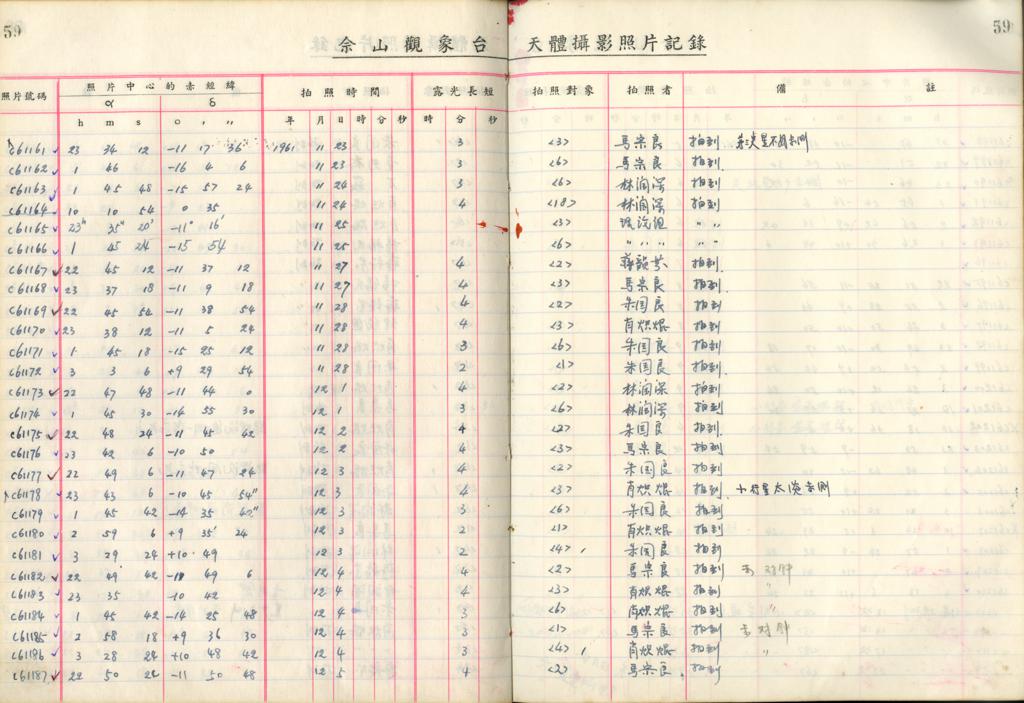 59 59
佘山觀象台 天體攝影照片記錄
照片號碼 照片中心的赤經緯 拍照時間 露光長短 拍照對象 拍照者 備 註
α δ
h m s ° ′ ″ 年 月 日 時 分 秒 時 分 秒
c61161 23 34 12 -11 17 36 1961 11 23 3 <3> 馬宗良 拍到
c61162 1 46 -16 4 6 11 23 3 <6> 馬宗良 拍到
c61163 1 45 48 -15 57 24 11 24 3 <6> 林润深 拍到
c61164 10 10 54 0 35 11 24 4 <18> 林润深 拍到
c61165 23h 35m 20s -11° 16′ 11 25 <3> 〃 〃
c61166 1 45 24 -15 54 11 25 <6> 〃 〃 〃 〃 〃
c61167 22 45 12 -11 37 12 11 27 4 <2> 拍到
c61168 23 37 18 -11 9 18 11 27 4 <3> 馬宗良 拍到
c61169 22 45 54 -11 38 54 11 28 4 <2> 朱国良 拍到
c61170 23 38 12 -11 5 24 11 28 4 <3> 肖炽焜 拍到
c61171 1 45 18 -15 25 12 11 28 3 <6> 朱国良 拍到
c61172 3 3 6 +9 29 54 11 28 2 <1> 朱国良 拍到
c61173 22 47 48 -11 44 0 12 1 4 <2> 林润深 拍到
c61174 1 45 30 -14 55 30 12 1 3 <6> 林润深 拍到
c61175 22 48 24 -11 45 42 12 2 4 <2> 朱国良 拍到
c61176 23 42 6 -10 50 12 2 4 <3> 馬宗良 拍到
c61177 22 49 6 -11 47 24 12 3 4 <2> 朱国良 拍到
c61178 23 43 6 -10 45 54″ 12 3 4 <3> 肖炽焜 拍到 小行星太淡未测
c61179 1 45 42 -14 35 42″ 12 3 3 <6> 朱国良 拍到
c61180 2 59 6 +9 35′ 24 12 3 2 <1> 肖炽焜 拍到
c61181 3 29 24 +10 49 12 3 2 <4> 朱国良 拍到
c61182 22 49 42 -11 49 6 12 4 4 <2> 馬宗良 拍到 未对钟
c61183 23 35 -10 42 12 4 4 <3> 肖炽焜 拍到 〃
c61184 1 45 42 -14 25 48 12 4 3 <6> 肖炽焜 拍到 〃
c61185 2 58 18 +9 36 30 12 4 3 <1> 馬宗良 拍到 未对钟
c61186 3 28 24 +10 48 42 12 4 3 <4> 肖炽焜 拍到 〃
c61187 22 50 24 -11 50 48 12 5 4 <2> 馬宗良 拍到